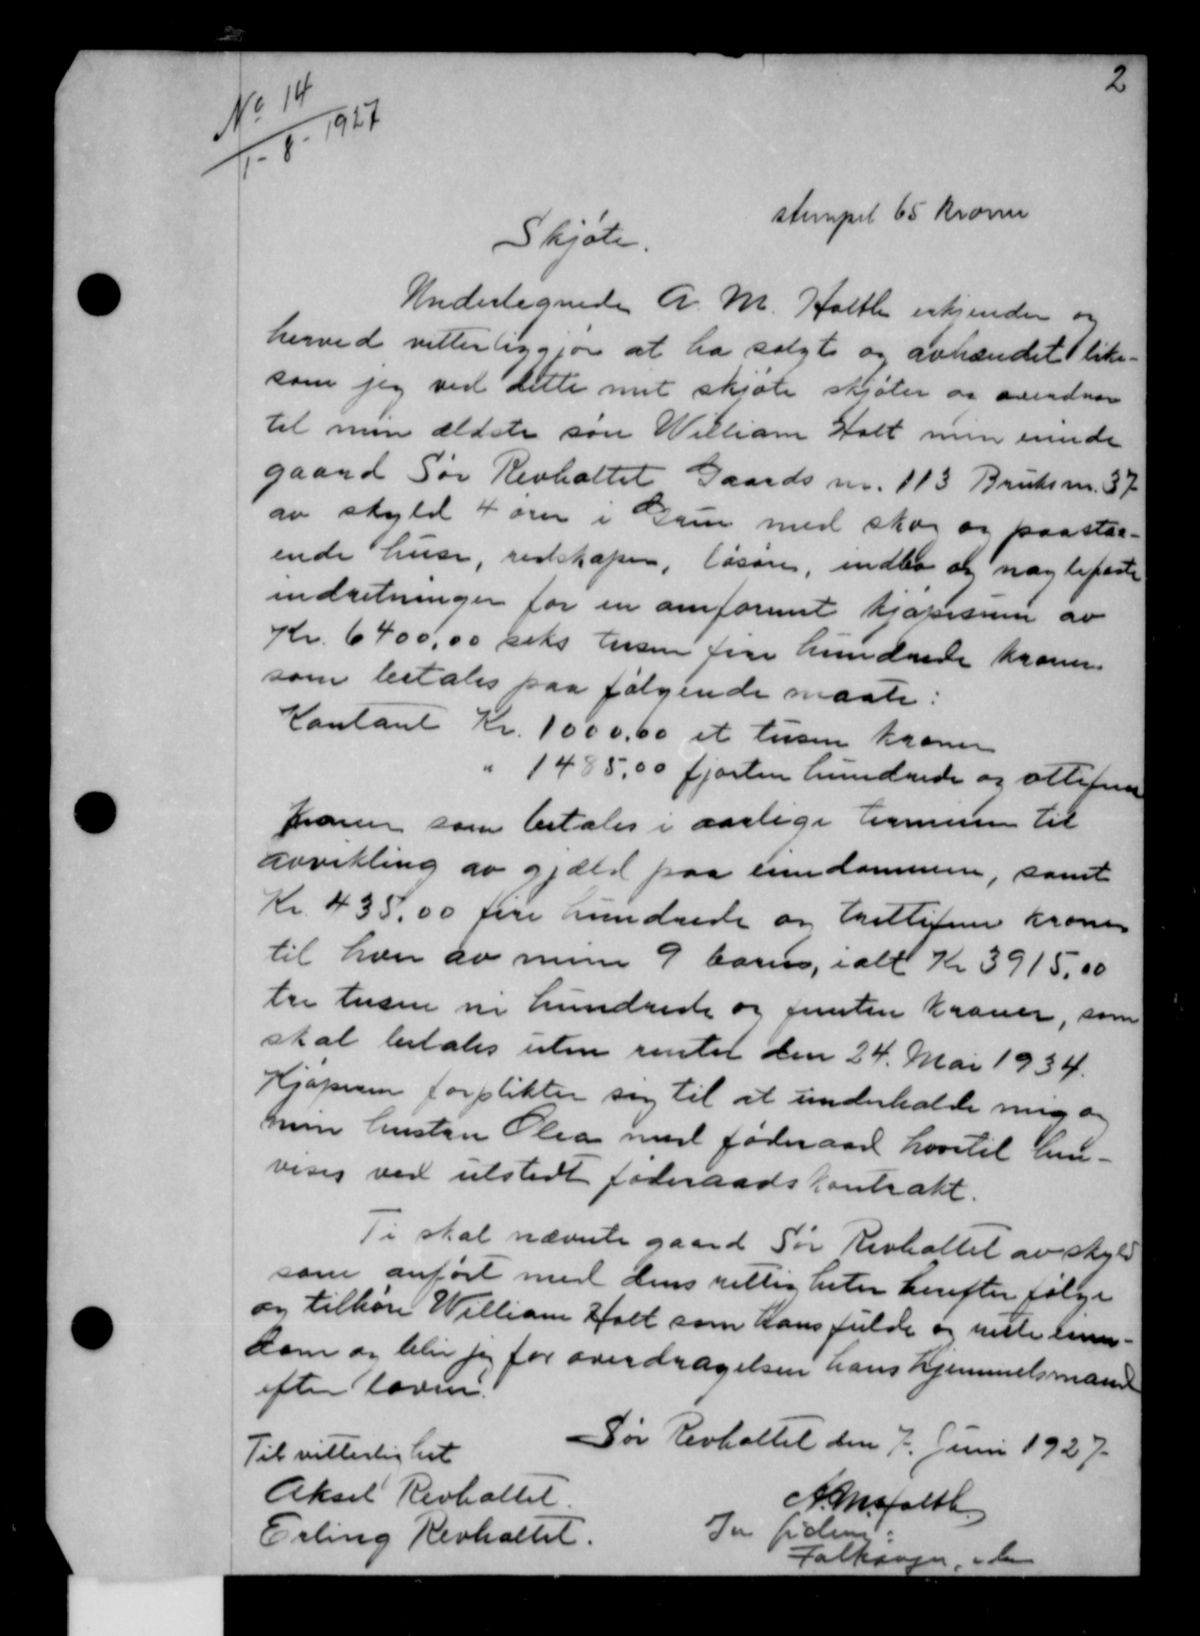 2
No 14
1-8-1927
stempel 65 kroner
Skjøte.
Undertegnede A. M. Holth erkjender og
herved vitterliggjør at ha solgt og avhændet like-
som jeg ved dette mit skjøte skjøter og overdrar
til min ældste søn William Holt min eiende
gaard Sør Revholtet Gaards nr. 113 Bruksnr. 37
av skyld 4 ører i Grue med skog og paastaa-
ende huse, redskaper, løsøre, indbo og naglefaste
indretninger for en omforent kjøpesum av
Kr. 6400,00 seks tusen fire hundrede kroner
som betales paa følgende maate:
Kontant Kr. 1000.00 et tusen kroner
" 1485,00 fjorten hundrede og ottifem
kroner som betales i aarlige terminer til
avvikling av gjæld paa eiendommen, samt
Kr. 435,00 fire hundrede og trettifem kroner
til hver av mine 9 barn, ialt Kr 3915,00
tre tusen ni hundrede og femten kroner, som
skal betales uten renter den 24. Mai 1934.
Kjøperen forplikter sig til at underholde mig og
min hustru Olea med føderaad hvortil hen-
vises ved utstedt føderaadskontrakt.
Ti skal nævnte gaard Sør Revholtet av skyld
som anført med dens rettigheter herefter følge
og tilhøre William Holt som hans fulde og rette eien-
dom og blir jeg for overdragelsen hans hjemmelsmand
efter loven.
Sør Revholtet den 7. Juni 1927
Til vitterlighet
Aksel Revholtet.
Erling Revholtet.
A. M. Holth
In fidem: